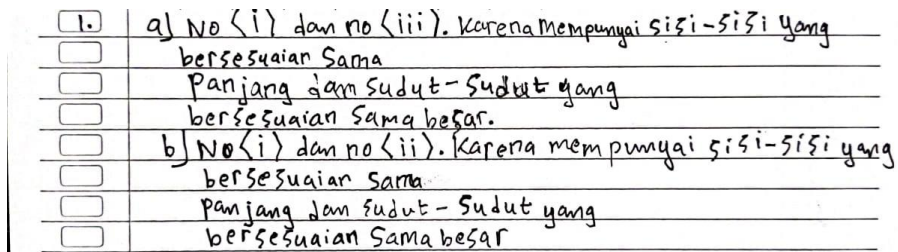 1. a) No <i> dan no <iii>. Karena mempunyai sisi-sisi yang
bersesuaian sama
panjang dan sudut-sudut yang
bersesuaian sama besar.
b) No <i> dan no <ii>. Karena mempunyai sisi-sisi yang
bersesuaian sama
panjang dan sudut-sudut yang
bersesuaian sama besar